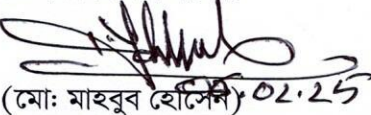 (মোঃ মাহবুব হোসেন) .02.25